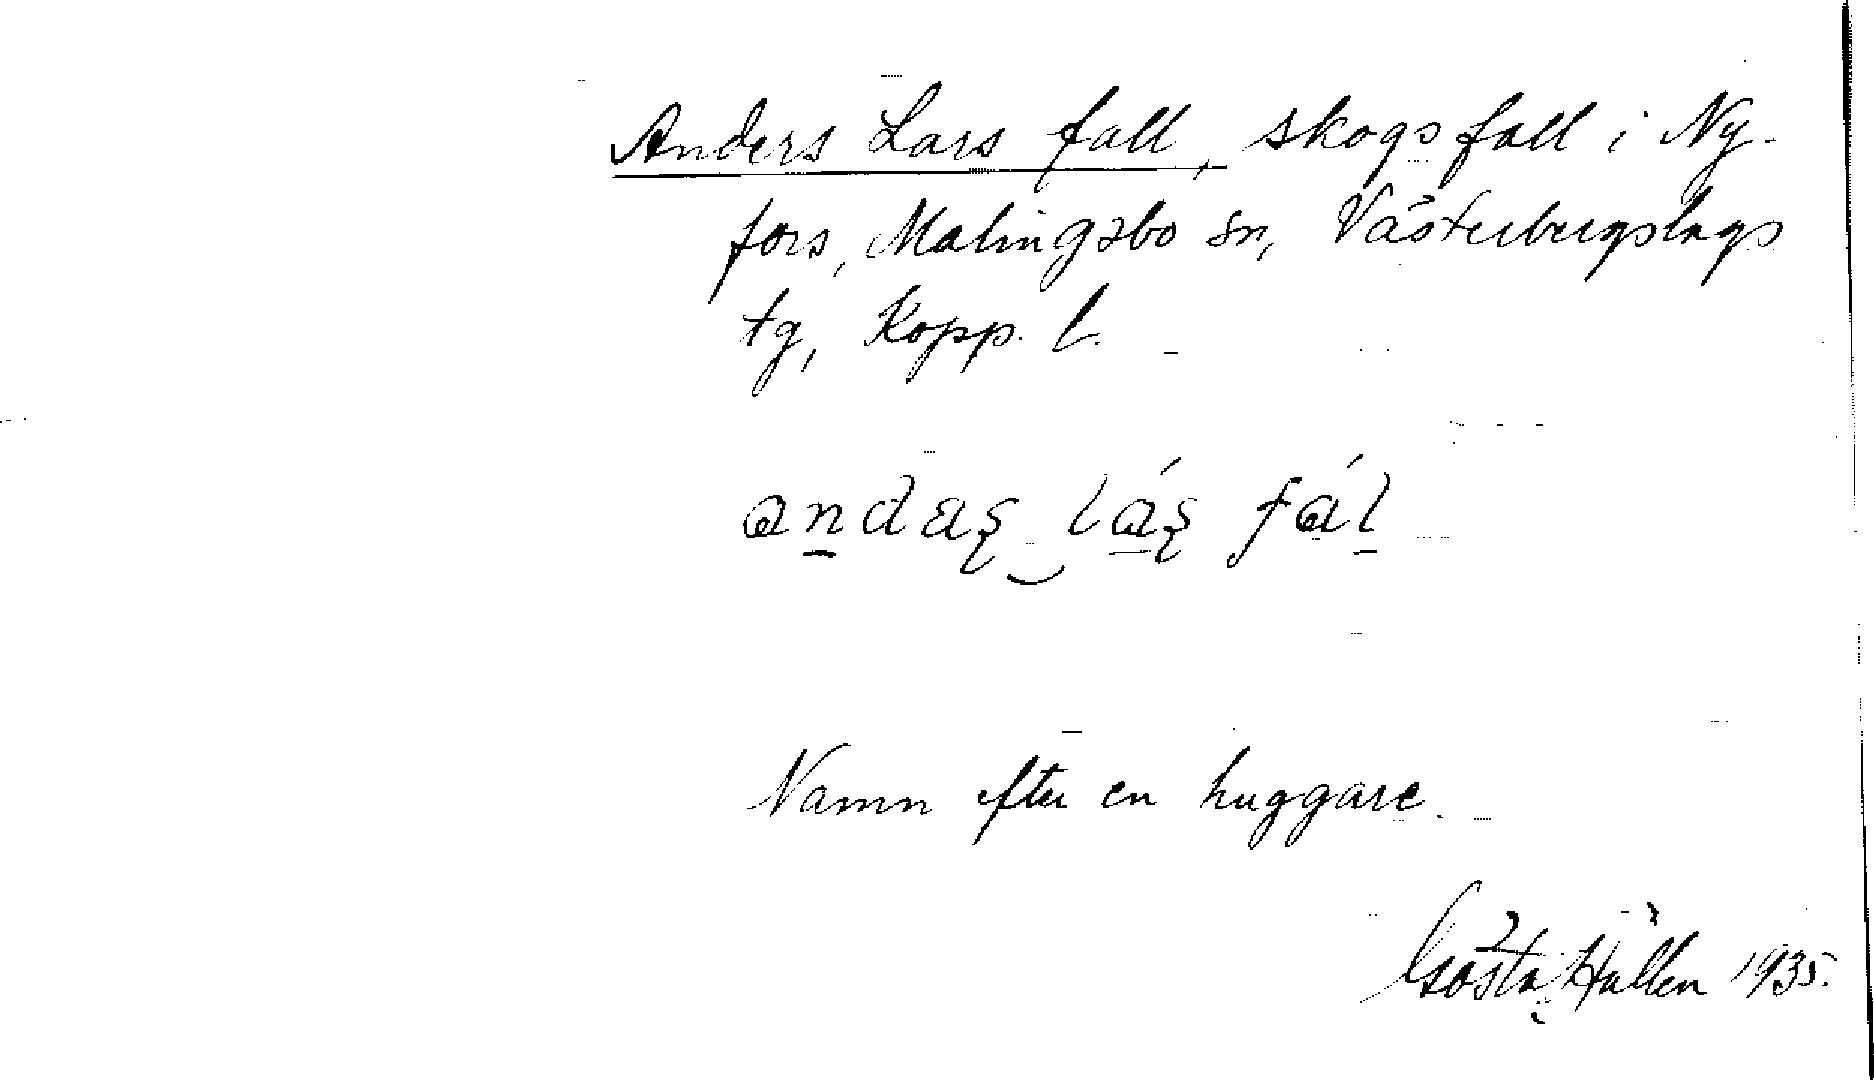 Anders Lars fall, skogsfall i Ny-
fors, Malingsbo sn, Västerbergslags
tg, Kopp. l.
andaʂ‿láʂ fál
Namn efter en huggare.
Gösta Hallen 1935.